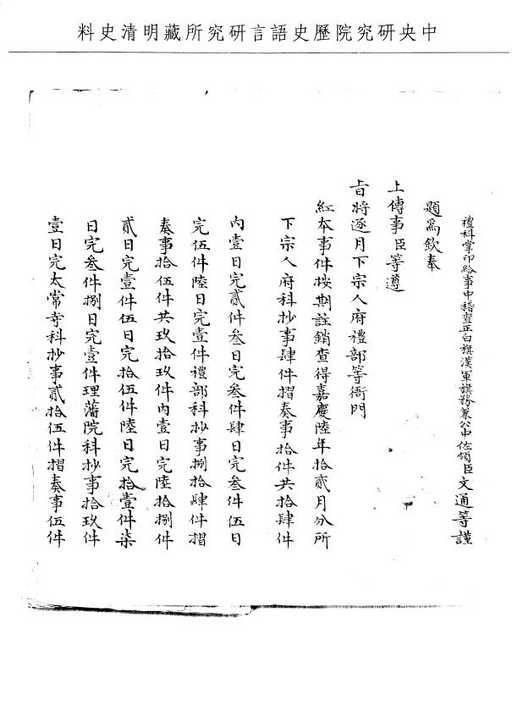 中央研究院歷史語言研究所藏明清史料
禮科掌印給事中稽查正白旗漢軍旗務兼公中佐領臣文通等謹
題為欽奉
上傳事臣等遵
旨將逐月下宗人府禮部等衙門
紅本事件按期註銷查得嘉慶陸年拾貳月分所
下宗人府科抄事肆件摺奏事拾件共拾肆件
內壹日完貳件叁日完叁件肆日完叁件伍日
完伍件陸日完壹件禮部科抄事捌拾肆件摺
奏事拾伍件共玖拾玖件內壹日完陸拾捌件
貳日完壹件伍日完拾伍件陸日完拾壹件柒
日完叁件捌日完壹件理藩院科抄事拾玖件
壹日完太常寺科抄事貳拾伍件摺奏事伍件